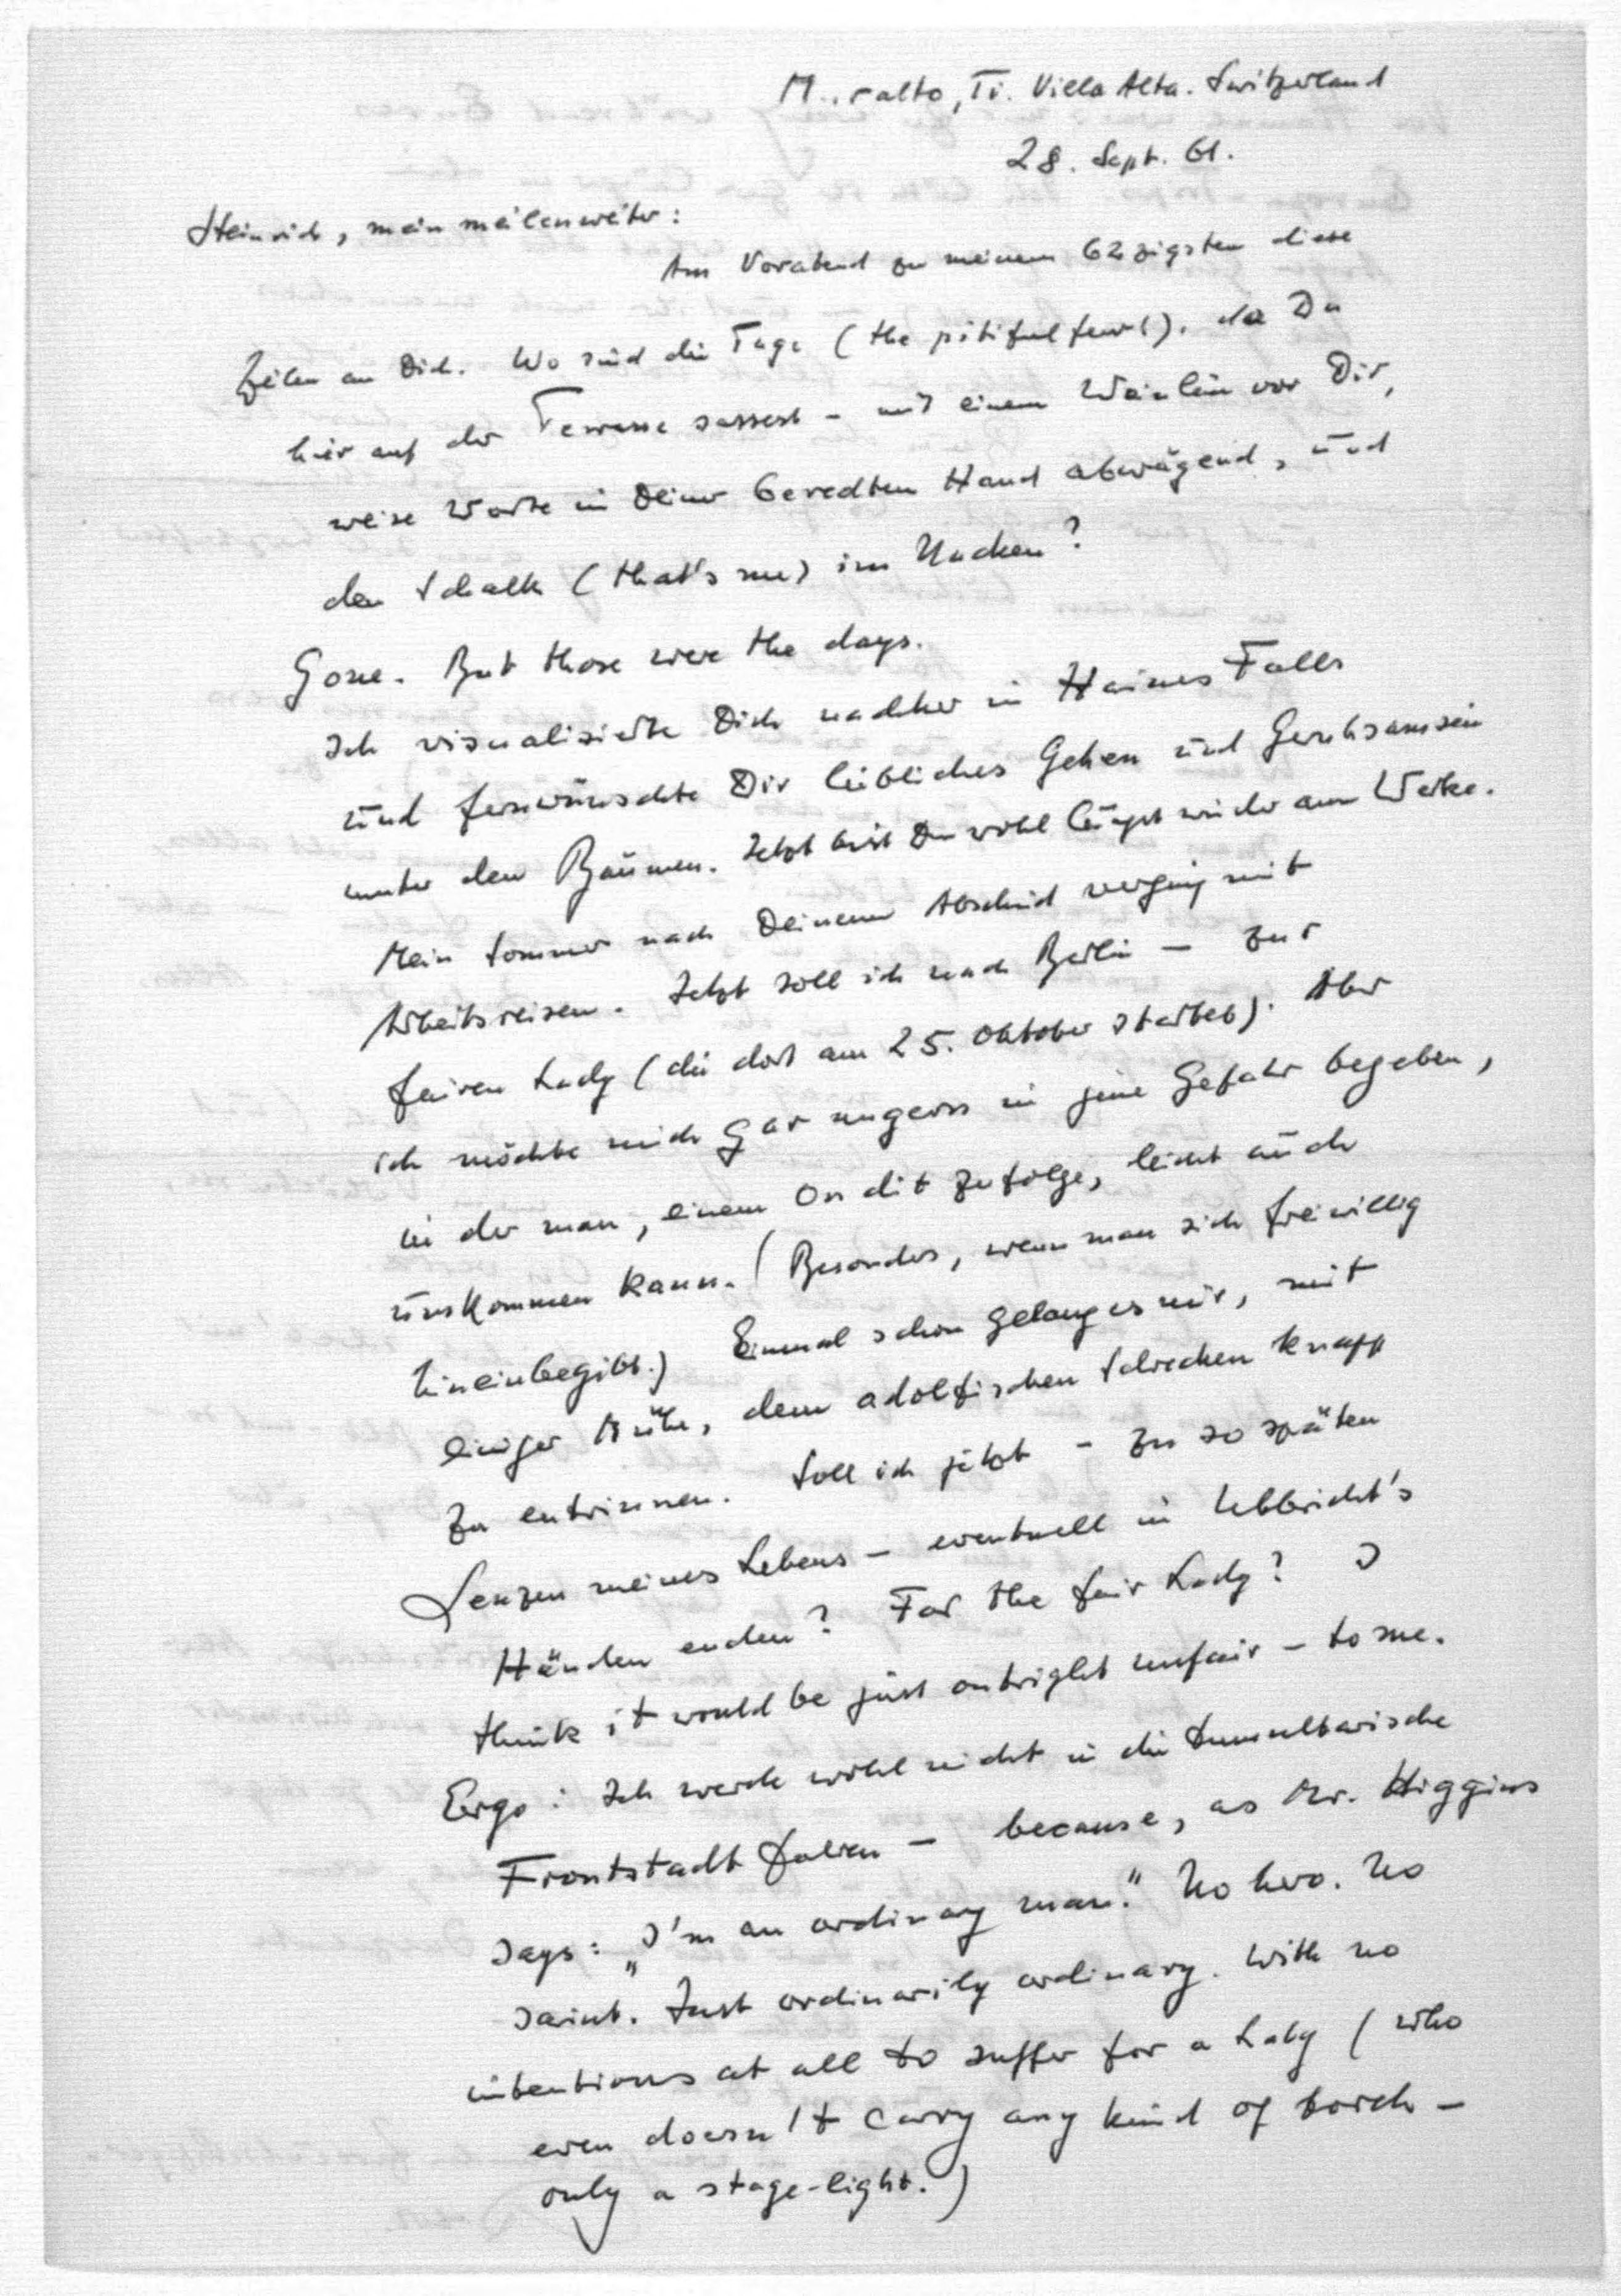 M..ralto, Ti. Villa Alta. Switzerland
28. Sept. 61.
Heinrich, mein meilenweiter:
Am Vorabend zu meinem 62zigsten diese
Zeilen an Dich. Wo sind die Tage (the pitiful few!), da Du
hier auf der Terrasse sassest – mit einem Weinlein vor Dir,
weise Worte in Deiner beredten Hand abwägend, und
den Schalk (that's me) im Nacken?
Gone. But those were the days.
Ich visualisierte Dich nachher in Haines Falls
und fernwünschte Dir leibliches Gehen und Geruhsamsein
unter den Bäumen. Jetzt bist Du wohl längst wieder am Werke.
Mein Sommer nach Deinem Abschied verging mit
Arbeitsreisen. Jetzt soll ich nach Berlin – zur
fairen Lady (die dort am 25. Oktober startet). Aber
ich möchte mich gar ungern in jene Gefahr begeben,
in der man, einem On dit zufolge, leicht auch
umkommen kann. (Besonders, wenn man sich freiwillig
hineinbegibt.) Einmal schon gelang es mir, mit
einiger Mühe, dem adolfischen Schrecken knapp
zu entrinnen. Soll ich jetzt – zu so späten
Lenzen meines Lebens – eventuell in Ulbricht's
Händen enden? For the fair Lady? I
think it would be just outright unfair – to me.
Ergo: Ich werde wohl nicht in die tumultarische
Frontstadt fahren – because, as Mr. Higgins
says: „I'm an ordinary man." No hero. No
saint. Just ordinarily ordinary. With no
intentions at all to suffer for a Lady (who
even doesn't carry any kind of torch –
only a stage-light.)